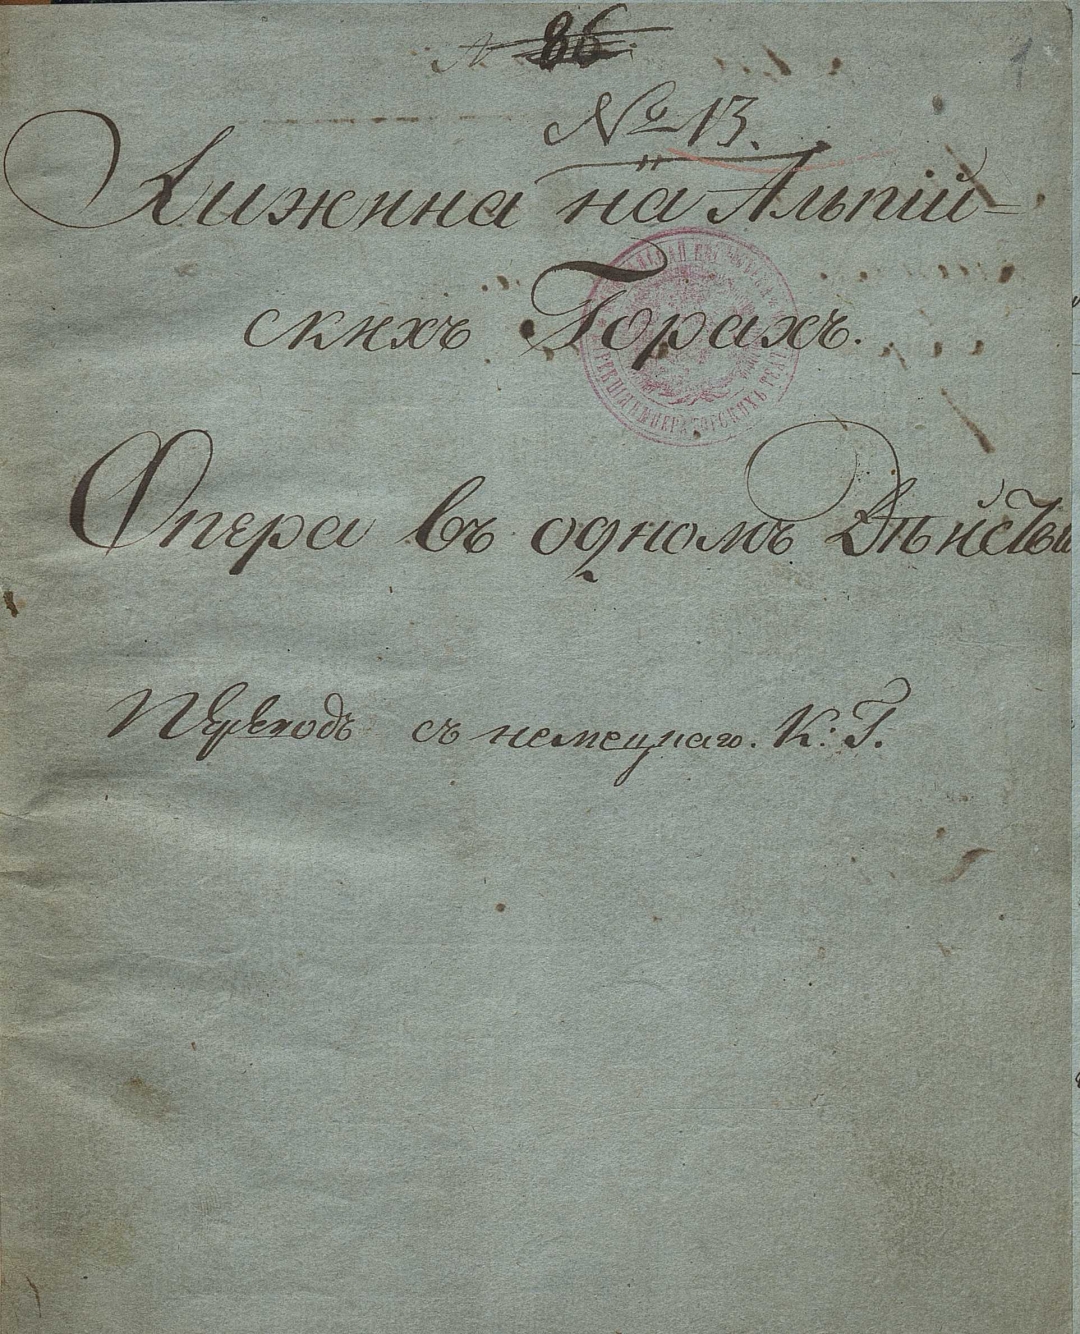 № 86
1
№ 13.
Хижина на Альпій-
скихъ Горахъ.
Опера въ одномъ Дѣйстві
Переводъ съ немецкаго. К: Г.